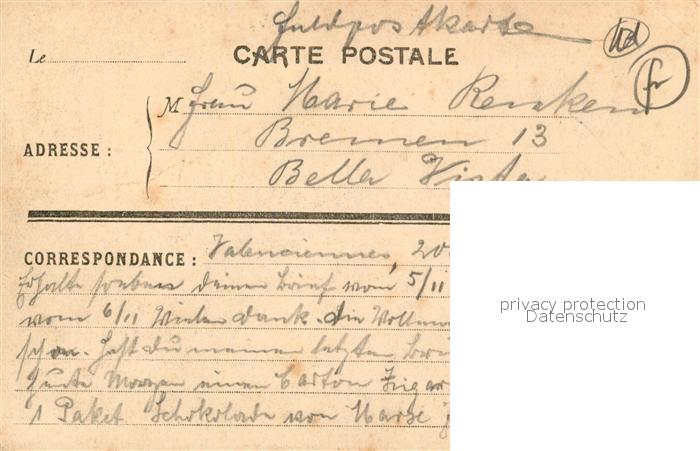 Feldpostkarte
Le
CARTE POSTALE
M Frau Marie Renken
ADRESSE :
Bremen 13
Bella Vista
CORRESPONDANCE : Valenciennes, 20
Erhalte soeben deinen Brief vom 5/11
vom 6/11 Vielen Dank. Die
schon. Hast du meinen letzten
heute Morgen einen Carton Zigar
1 Paket Schokolade von
privacy protection
Datenschutz